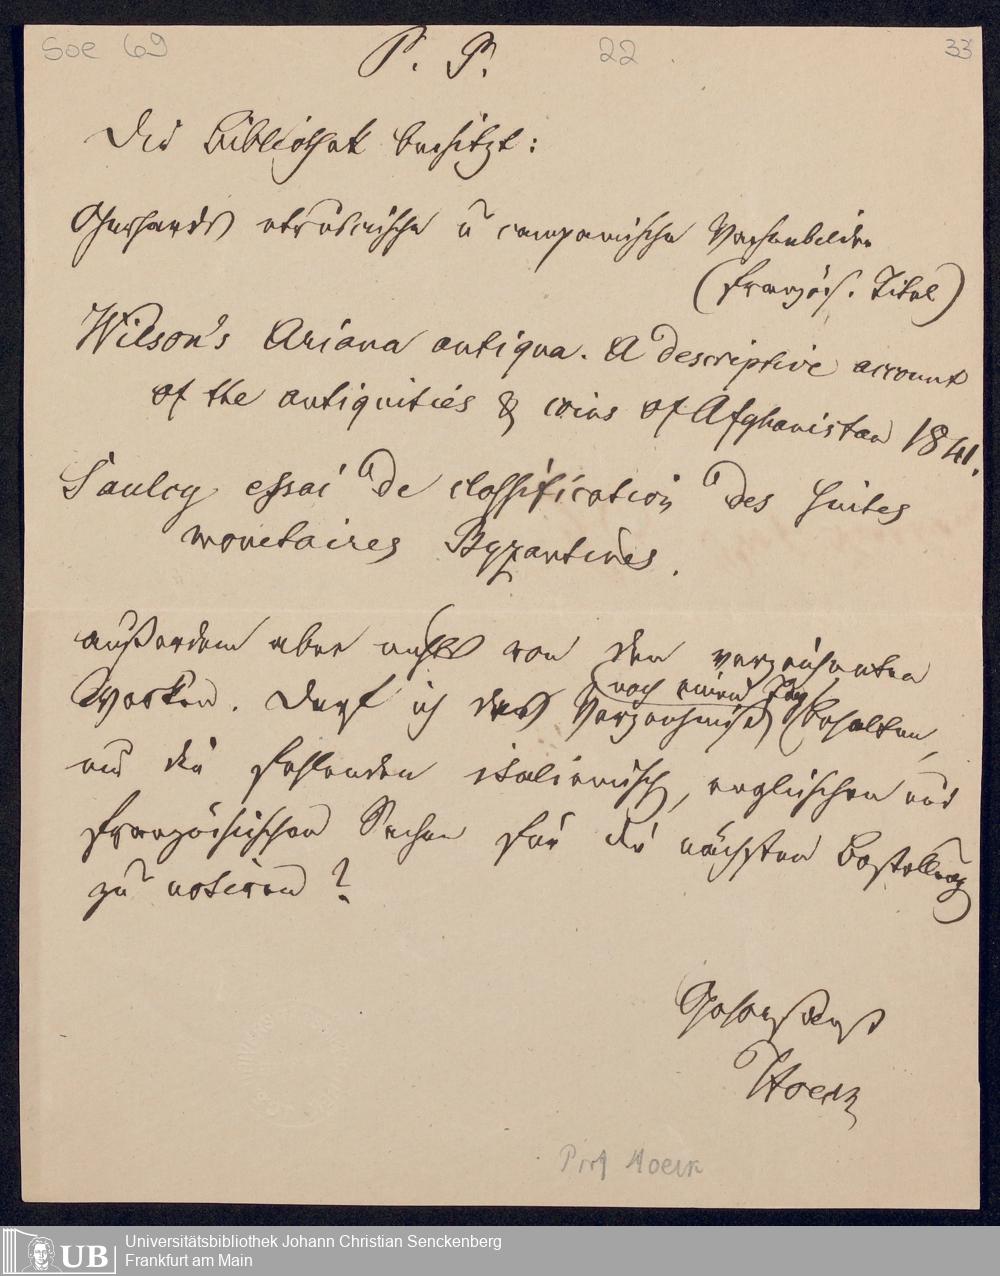 Soe 69
22
33
P. P.
Die Bibliothek besitzt:
Gerhards etruskische u campanische Vasenbilder
(französ. Titel)
Wilson's Ariana antiqua. A descriptive account
of the antiquities & coins of Afghanistan 1841.
Saulcy essai de classification des suites
monetaires Byzantines.
außerdem aber nichts von den verzeichneten
Werken. Darf ich das Verzeichniß noch einen Tag behalten,
um die fehlenden italienisch, englischen und
französischen Sachen für die nächsten Bestellung
zu notiren?
Gehorsamst
Hoeck
Prof Hoeck
UB
Universitätsbibliothek Johann Christian Senckenberg
Frankfurt am Main